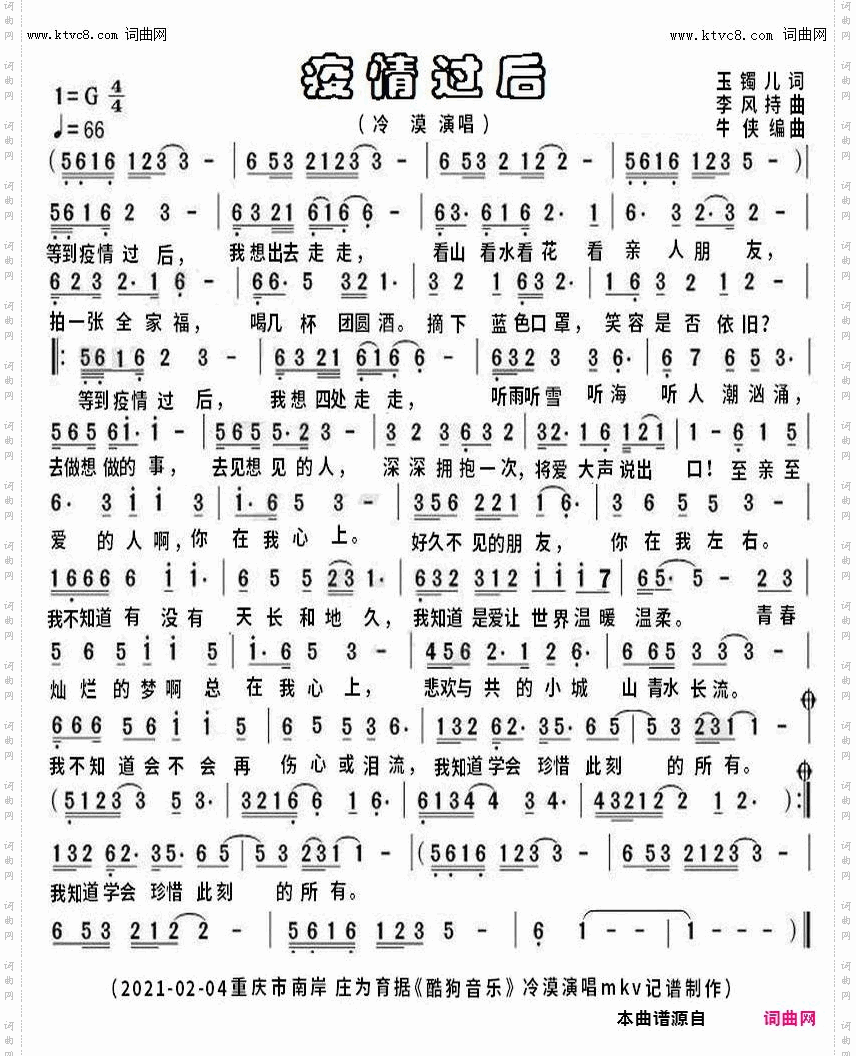 www.ktvc8.com 词曲网
www.ktvc8.com 词曲网
疫情过后
1=G 4/4
♩=66
(冷 漠 演唱)
玉镯儿词
李风持曲
牛 侠编曲
(5616 1233 - | 6 53 21233 - | 6 53 2 122 - | 5616 1235 - )|
5616 2 3 - | 63 21 616 6 - | 63· 616 2· 1 | 6· 3 2·3 2 - |
等到疫情 过 后， 我想出去 走走， 看山 看水看花 看 亲 人朋 友，
6 2 3 2· 1 6 - | 66· 5 321· | 3 2 1 632· | 1 6 3 2 1 2 - |
拍一张 全 家福， 喝几 杯 团圆酒。 摘下 蓝色口罩， 笑容是否 依旧？
‖: 5616 2 3 - | 6321 616 6 - | 6323 3 6· | 6 7 6 5 3· |
等到疫情 过 后， 我想四处 走走， 听雨听雪 听海 听人 潮汹涌，
565 61· 1 - | 565 5·2 3 - | 3 2 3 6 3 2 | 32· 1 6 121 | 1 - 6 1 5 |
去做想 做的 事， 去见想 见的人， 深深拥抱一次， 将爱 大声说出 口！ 至亲至
6· 3 1 1 3 | 1·6 5 3 - | 356 221 1 6· | 3 6 5 5 3 - |
爱 的人啊，你 在我 心上。 好久不 见的朋 友， 你在我左右。
1666 6 1 1· | 6 5 5 23 1· | 632 312 1 1 1 7 | 65· 5 - 2 3 |
我不知道 有 没有 天长和地 久， 我知道 是爱让 世界温暖 温柔。 青春
5 6 5 1 1 5 | 1·6 5 3 - | 456 2· 1 2 6· | 6 65 3 3 - |
灿烂的梦啊 总 在我 心上， 悲欢与 共 的小城 山 青水 长流。
666 5 6 1 1 5 | 6 5 5 3 6· | 132 62· 35· 6 5 | 5 3 2311 - |
我不知 道会不会再 伤心或泪流， 我知道学会 珍惜 此刻 的所有。
(51233 5 3· | 32166 1 6· | 61344 3 4· | 432122 1 2· ):‖
132 62· 35· 6 5 | 5 3 231 1 - |(5616 1233 - | 6 53 21233 - |
我知道学会 珍惜 此刻 的所有。
6 53 2122 - | 5616 1235 - | 6 1 - - | 1 - - - )‖
(2021-02-04重庆市南岸 庄为育据《酷狗音乐》冷漠演唱mkv记谱制作)
本曲谱源自 词曲网